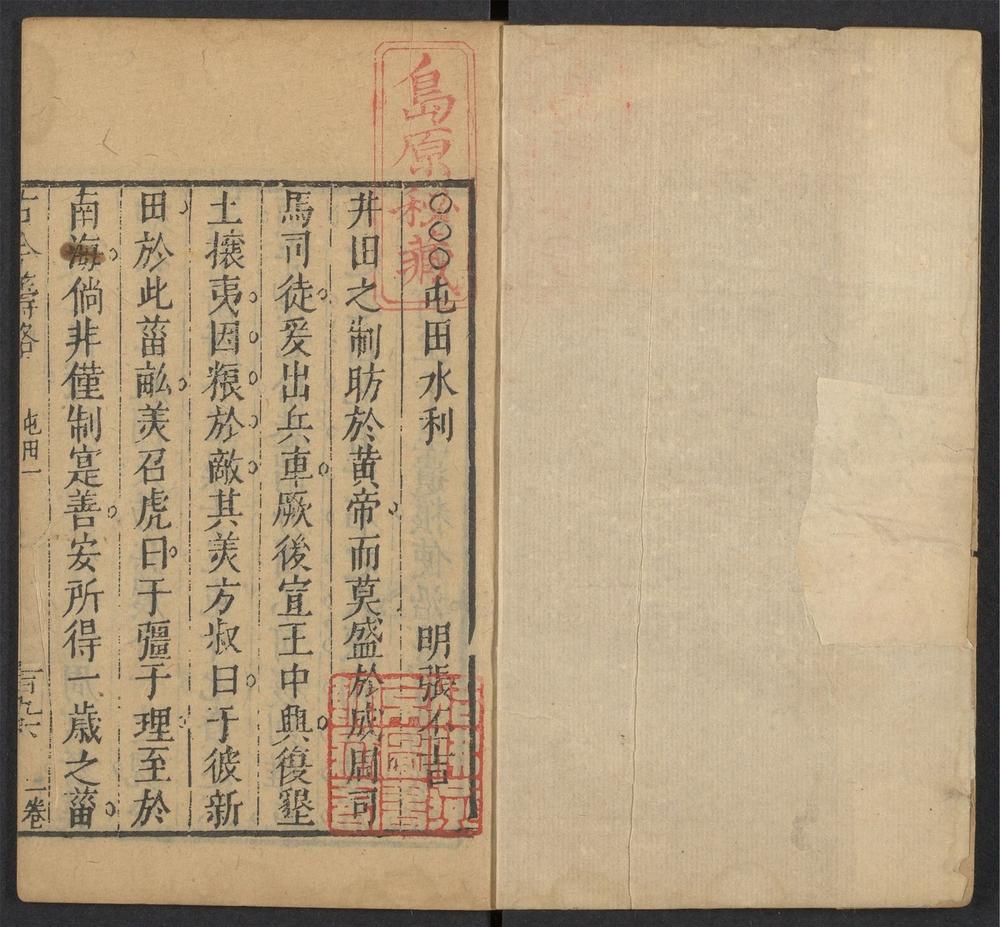 島原秘藏
○○○屯田水利 明張丕吉
井田之制昉於黄帝而莫盛於成周司
馬司徒爰出兵車厥後宣王中興復墾
土攘夷因粮於敵其美方叔曰于彼新
田於此菑畝美召虎曰于彊于理至於
南海倘非僅制寔善安所得一歲之菑
古今籌略 屯田一 一百九六 一卷